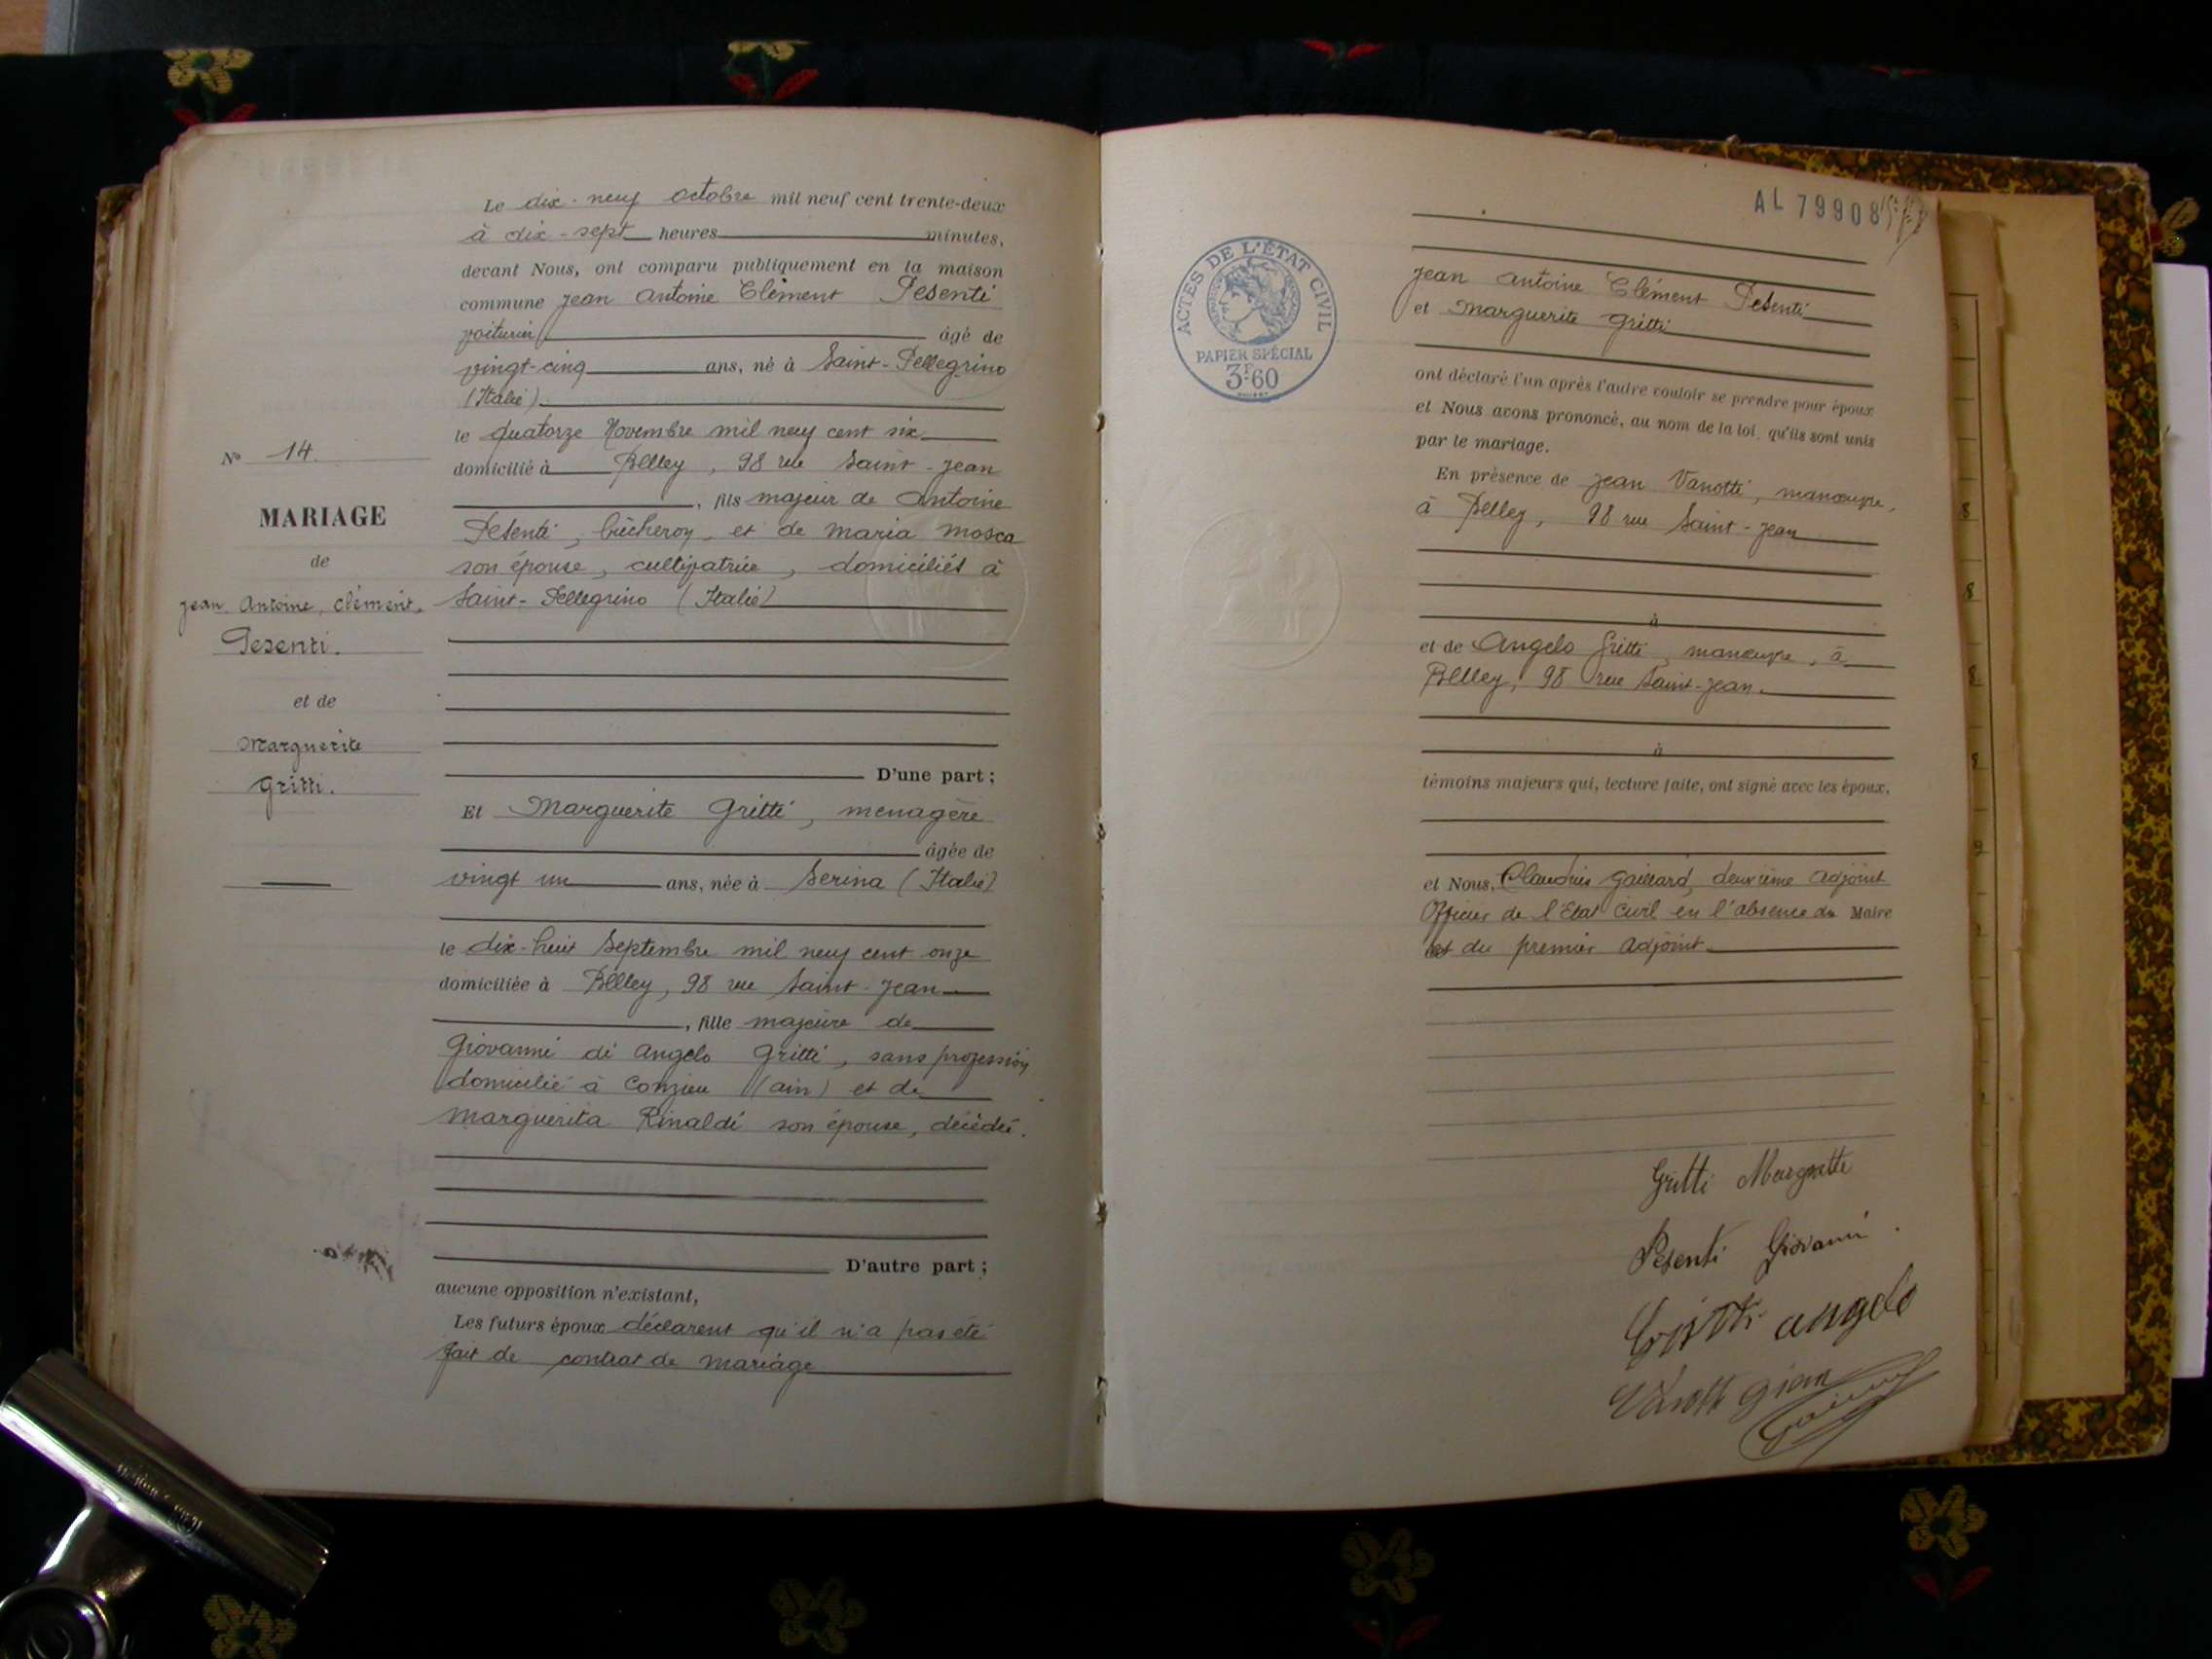 Le dix-neuf octobre mil neuf cent trente-deux
à dix-sept heures minutes,
devant Nous, ont comparu publiquement en la maison
commune Jean Antoine Clément Pesenti
voiturin âgé de
vingt-cinq ans, né à Saint-Pellegrino
(Italie)
le quatorze Novembre mil neuf cent six
domicilié à Belley, 98 rue Saint-Jean
, fils majeur de Antoine
Pesenti, bûcheron, et de Maria Mosca
son épouse, cultivatrice, domiciliés à
Saint-Pellegrino (Italie)
D'une part ;
Et Marguerite Gritti, menagère
âgée de
vingt un ans, née à Serina (Italie)
le dix-huit Septembre mil neuf cent onze
domiciliée à Belley, 98 rue Saint-Jean
, fille majeure de
Giovanni di Angelo Gritti, sans profession
domicilié à Conzieu (Ain) et de
Marguerita Rinaldi son épouse, décédée.
D'autre part ;
aucune opposition n'existant,
Les futurs époux déclarent qu'il n'a pas été
fait de contrat de mariage
N° 14.
MARIAGE
de
Jean, Antoine, Clément,
Pesenti.
et de
Marguerite
Gritti.
AL 79908
ACTES DE L'ÉTAT CIVIL
PAPIER SPÉCIAL
3F.60
Jean Antoine Clément Pesenti
et Marguerite Gritti
ont déclaré l'un après l'autre vouloir se prendre pour époux
et Nous avons prononcé, au nom de la loi, qu'ils sont unis
par le mariage.
En présence de Jean Vanotti, manœuvre,
à Belley, 98 rue Saint-Jean
à
et de Angelo Gritti, manœuvre, à
Belley, 98 rue Saint-Jean.
à
témoins majeurs qui, lecture faite, ont signé avec les époux.
et Nous, Claudius Gaillard, deuxième adjoint
Officier de l'Etat Civil en l'absence du Maire
et du premier adjoint.
Gritti Margritte
Pesenti Giovanni.
Gritti angelo
Vanotti Gian